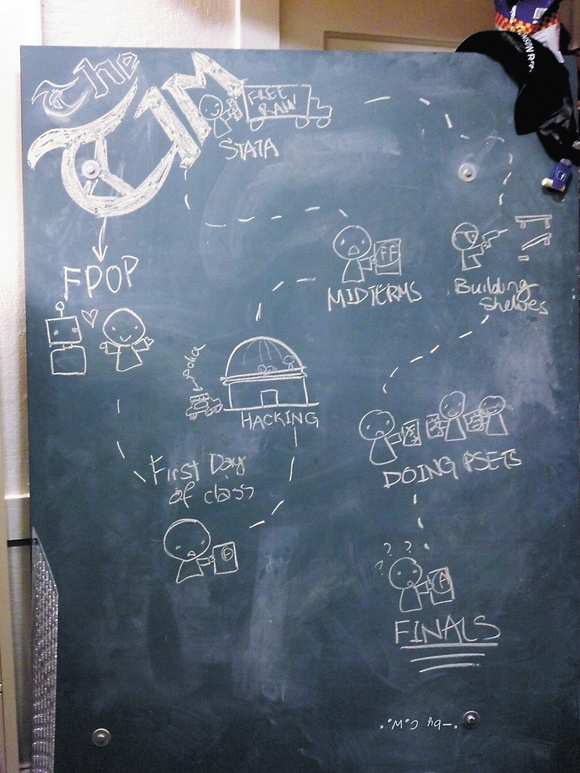 The
TIM
FREE
RAW
STATA
FPOP
FF
MIDTERMS
Building
Shelves
Police
HACKING
First Day
of class
DOING PSETS
? ? ?
A
FINALS
—by C.W.